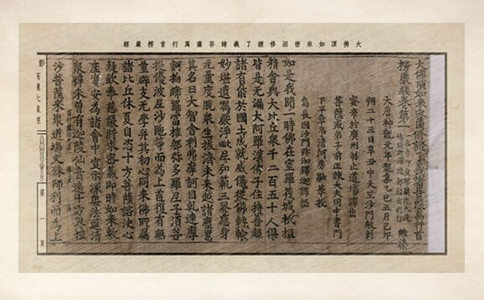 大佛頂如來密因修證了義諸菩薩萬行首楞嚴經
大佛頂如來密因修證了義諸菩薩萬行首
楞嚴經卷第一
大唐神龍元年龍集乙巳五月己卯
朔二十三日辛丑中天竺沙門般剌
蜜帝於廣州制止道場譯出
菩薩戒弟子前正議大夫同中書門
下平章事清河房融筆授
烏長國沙門彌伽釋迦譯語
如是我聞一時佛在室羅筏城祇桓
精舍與大比丘衆千二百五十人俱
皆是無漏大阿羅漢佛子住持善超
諸有能於國土成就威儀從佛轉輪
妙堪遺囑嚴淨毗尼弘範三界應身
無量度脫衆生拔濟未來越諸塵累
其名曰大智舍利弗摩訶目乾連摩
訶拘絺羅富樓那彌多羅尼子須菩
提優波尼沙陀等而爲上首復有無
量辟支無學并其初心同來佛所屬
諸比丘休夏自恣十方菩薩諮決心
疑欽奉慈嚴將求密義即時如來敷
座宴安爲諸會中宣示深奧法筵清
衆得未曾有迦陵仙音遍十方界恒
沙菩薩來聚道場文殊師利而爲上
第一頁